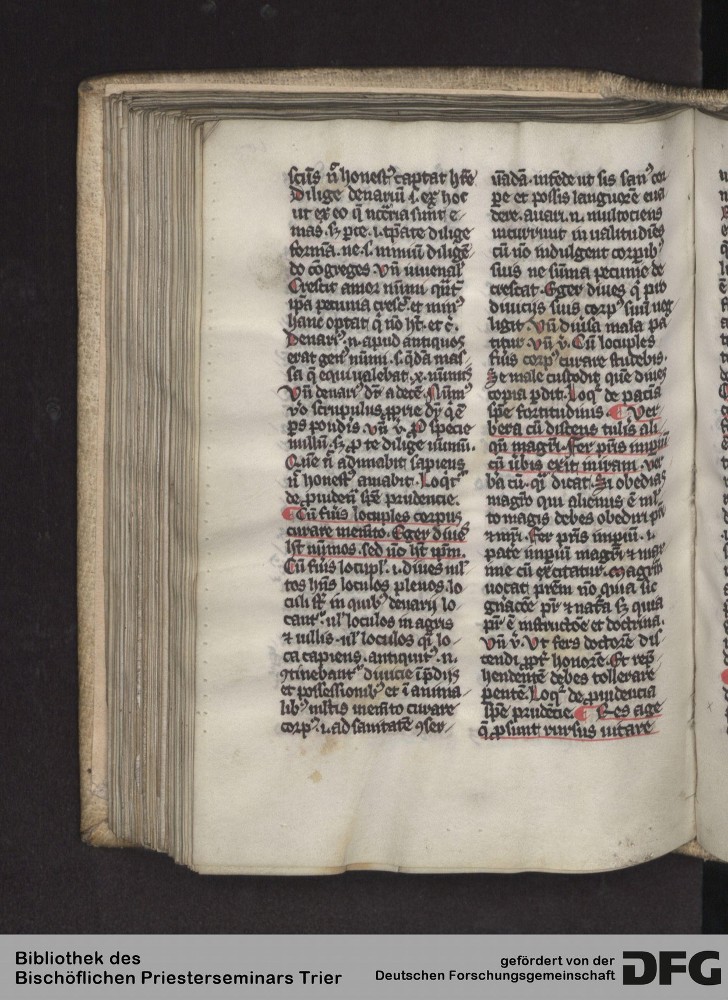 sciēs n̄ honestꝰ captat h̄re
Dilige denariū .i. ex hoc
ut ex eo q̄ nc̄cīa sunt e
mas. sꝫ ꝑte .i. tp̄ate dilige
formā. ne .s. nimiū diligē
do cōgreges. Vn̄ iuuenal
Crescit amor nūmi quāt̄
ip̄a pecunia crescit. et minꝰ
hanc optat q̄ nō ht̄. et c̄.
Denariꝰ .n. apud antiquos
erat genꝰ nūmi .s. q̄dā mas
sa q̄ equiualebat .x. nūmis
Vn̄ denariꝰ dr̄ a decē. Nūmꝰ
v̄o scrupulus ꝓprie dr̄
ꝑs pondis. Vn̄ v̄. ꝓ specie
nullū. sꝫ ꝓ te dilige nūmū.
Quē n̄ adamabit sapiens
n̄ honestꝰ amabit. Loqꝛ̄
de prudēn̄ sp̄e prudencie.
Cū fūis locuples corpus
curare memēto. Eger diues
h̄t nūmos. sed nō h̄t ip̄m.
Cū fūis locupl̄. .i. diues ml̄
tos hn̄s loculos plenos. lo
culi st̄ in quibꝰ denarii lo
cant̄. ul̓ loculos in agris
⁊ uillis. ul̓ loculos q̄ lo
ca capiens. antiquit̄ .n.
ꝯtinebant̄ diuicie ī p̄diis
et possessionibꝰ et ī anima
libꝰ. ml̓tis memēto curare
corpꝰ .i. ad sanitatē ꝯser
uādā. intēde ut sis sanꝰ cor
pe et possis languorē eua
dere. auari .n. multociens
incurrunt in ualitudīes
cū nō indulgent corpibꝰ
suis ne sūma pecunie de
crescat. Eger diues q̄ pro
diuicijs suis corpꝰ suū neg
ligit. Vn̄ diuisa mala pa
titur. Vn̄ v̄. Cū locuples
fūis corpꝰ curare studebis.
Se male custodit quē diues
copia ꝑdit. Loqꝛ̄ de pacīa
sp̄e fortitudinis. Ver
bera cū discens tulis ali
qn̄ magr̄i. Fer pr̄is impiū
cū ūbis exit in iram. ver
ba cū. qī dicat. Si obedias
magr̄o qui alienus ē ml̓
to magis debes obediri pr̄i
⁊ mr̄i. Fer pr̄is impiū .i.
pate impiū magr̄i ⁊ max
ime cū exercitatur. Magrīu
uocat prēm nō quia sic
gnacōe pr̄ ⁊ nat̄a sꝫ quia
pr̄ ē instructōe et doctrina.
Vn̄ v̄. Ut fers doctorē dis
cendi ꝓpt̄ honorē. Et rep̄
hendentē debes tollerare
pentē. Loqꝛ̄ de ꝓuidencia
sp̄e prudēcie. Res age
q̄ ꝓsunt rursus uitare
Bibliothek des
Bischöflichen Priesterseminars Trier
gefördert von der
Deutschen Forschungsgemeinschaft
DFG